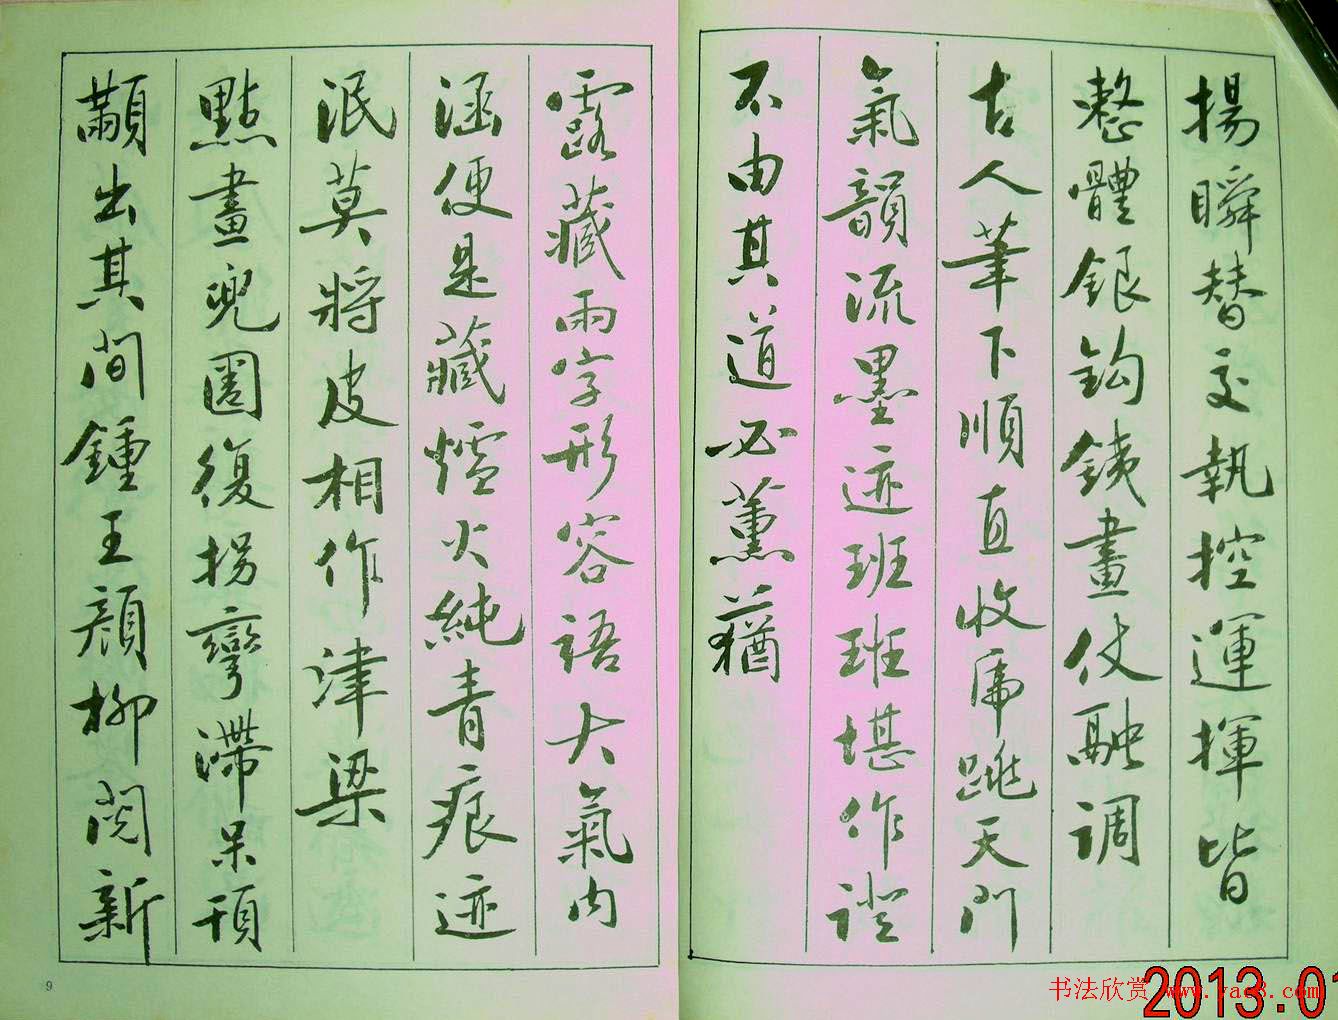 揚瞬替交執控運揮皆
整體銀鈎鐵畫仗融调
古人筆下順直收虎跳天門
氣韻流墨迹班班堪作證
不由其道必薰蕕
露藏兩字形容語大氣内
涵便是藏爐火純青痕迹
泯莫將皮相作津梁
點畫兜圈復拐彎滯呆頇
顢出其間鍾王顔柳閱新
9
书法欣赏 www.yac8.com
2013.01